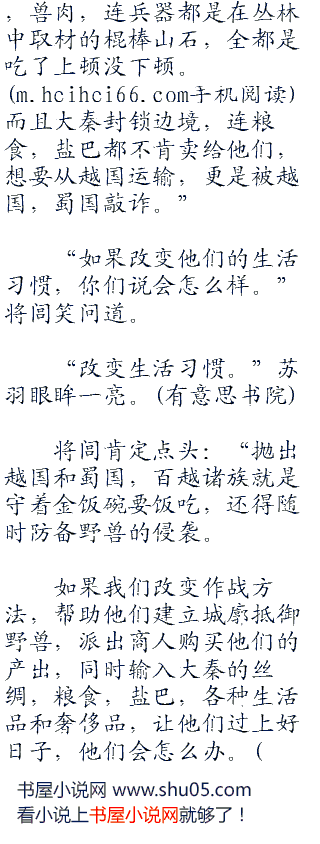 ，兽肉，连兵器都是在丛林
中取材的棍棒山石，全都是
吃了上顿没下顿。
(m.hcihci66.com手机阅读)
而且大秦封锁边境，连粮
食，盐巴都不肯卖给他们，
想要从越国运输，更是被越
国，蜀国敲诈。”
“如果改变他们的生活
习惯，你们说会怎么样。”
将闾笑问道。
“改变生活习惯。”苏
羽眼眸一亮。(有意思书院)
将闾肯定点头：“抛出
越国和蜀国，百越诸族就是
守着金饭碗要饭吃，还得随
时防备野兽的侵袭。
如果我们改变作战方
法，帮助他们建立城廓抵御
野兽，派出商人购买他们的
产出，同时输入大秦的丝
绸，粮食，盐巴，各种生活
品和奢侈品，让他们过上好
日子，他们会怎么办。(
书屋小说网 www.shu05.com
看小说上书屋小说网就够了！